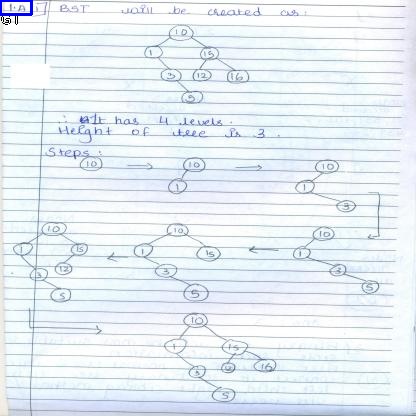 1.A i BST will be created as:
10
1 15
3 12 16
5
∴ It has 4 levels.
Height of tree is 3.
Steps:
10 → 10 → 10
1 1
3
10 10 10
1 15 1 15 1
3 12 3 3
5 5 5
10
1 15
3 16
5